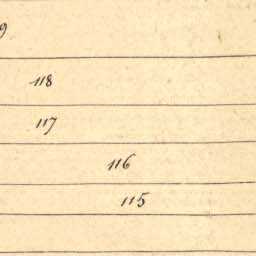 9
118
117
116
115